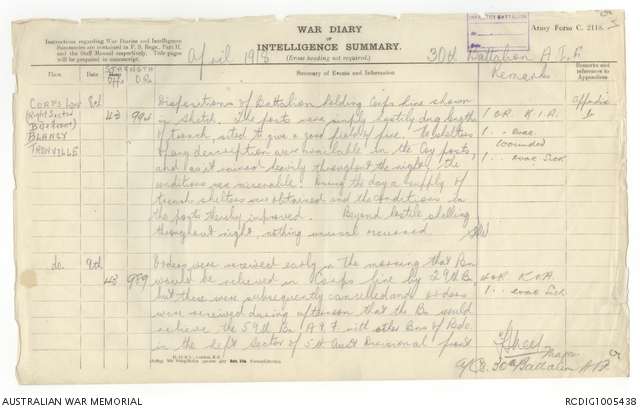 WAR DIARY
or
INTELLIGENCE SUMMARY.
(Erase heading not required.)
Instructions regarding War Diaries and Intelligence
Summaries are contained in F. S. Regs., Part II.
and the Staff Manual respectively. Title pages
will be prepared in manuscript.
Army Form C. 2118.
April 1918
30th Battalion A.I.F.
Place
Date
STRENGTH
Offs ORs
Summary of Events and Information
Remarks
Remarks and
references to
Appendices
CORPS LINE
(Right Sector
BLANGY
TRONVILLE
8th
43
994
Dispositions of Battalion holding Corps line shown
in sketch. The posts were simply hastily dug lengths
of trench, sited to give a good field of fire. No shelters
of any description were available in the Coy posts,
and as it rained heavily throughout the night, the
conditions were miserable. During the day a supply of
trench shelters was obtained and the conditions in
the posts thereby improved. Beyond hostile shelling
throughout night, nothing unusual occurred.
1 OR K.I.A.
1 " evac
wounded
1 " evac Sick
Appendix
do.
9th
43
989
Orders were received early in the morning that Bn
would be relieved in Corps line by 29th Bn
but these were subsequently cancelled and orders
were received during afternoon that the Bn would
relieve the 59th Bn A.I.F. with other Bns of Bde.
in the left Sector of 5th Aust Divisional front
4 OR K.I.A
1 " evac Sick
Major
30th Battalion A.I.F.
AUSTRALIAN WAR MEMORIAL
RCDIG1005438